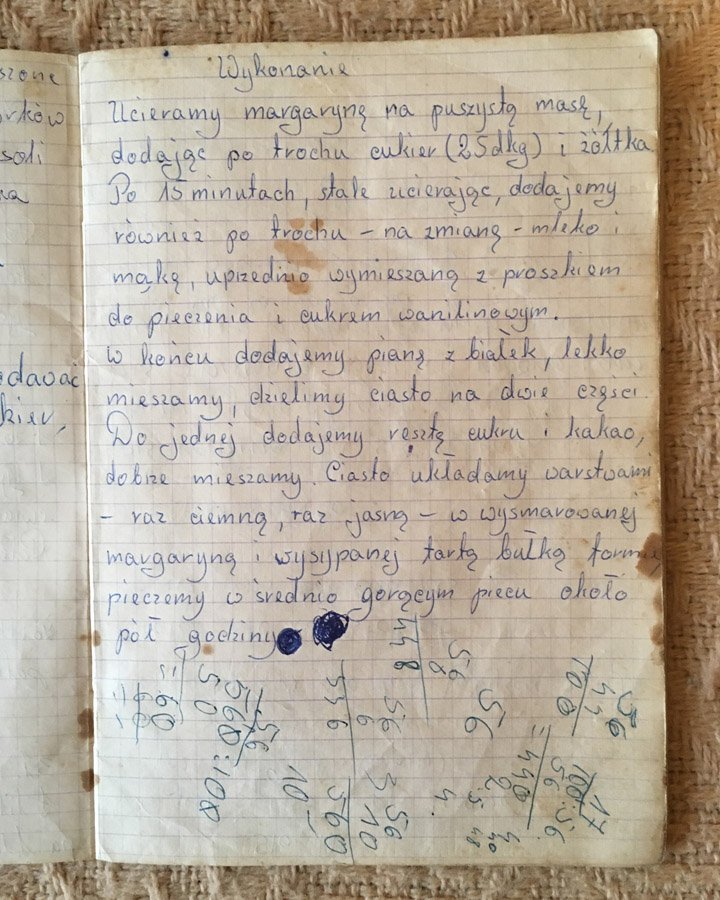 szone
rków
soli
na
dawać
kier,
Wykonanie
Ucieramy margarynę na puszystą masę,
dodając po trochu cukier (25dkg) i żółtka
Po 15 minutach, stale ucierając, dodajemy
również po trochu – na zmianę – mleko i
mąkę, uprzednio wymieszaną z proszkiem
do pieczenia i cukrem wanilinowym.
W końcu dodajemy pianę z białek, lekko
mieszamy, dzielimy ciasto na dwie części.
Do jednej dodajemy resztę cukru i kakao,
dobrze mieszamy. Ciasto układamy warstwami
– raz ciemną, raz jasną – w wysmarowanej
margaryną i wysypanej tartą bułką formie
pieczemy w średnio gorącym piecu około
pół godziny
56
8
448
56
6
336
56
10
560
560:100
56
44
100
17
100:56
56
=440